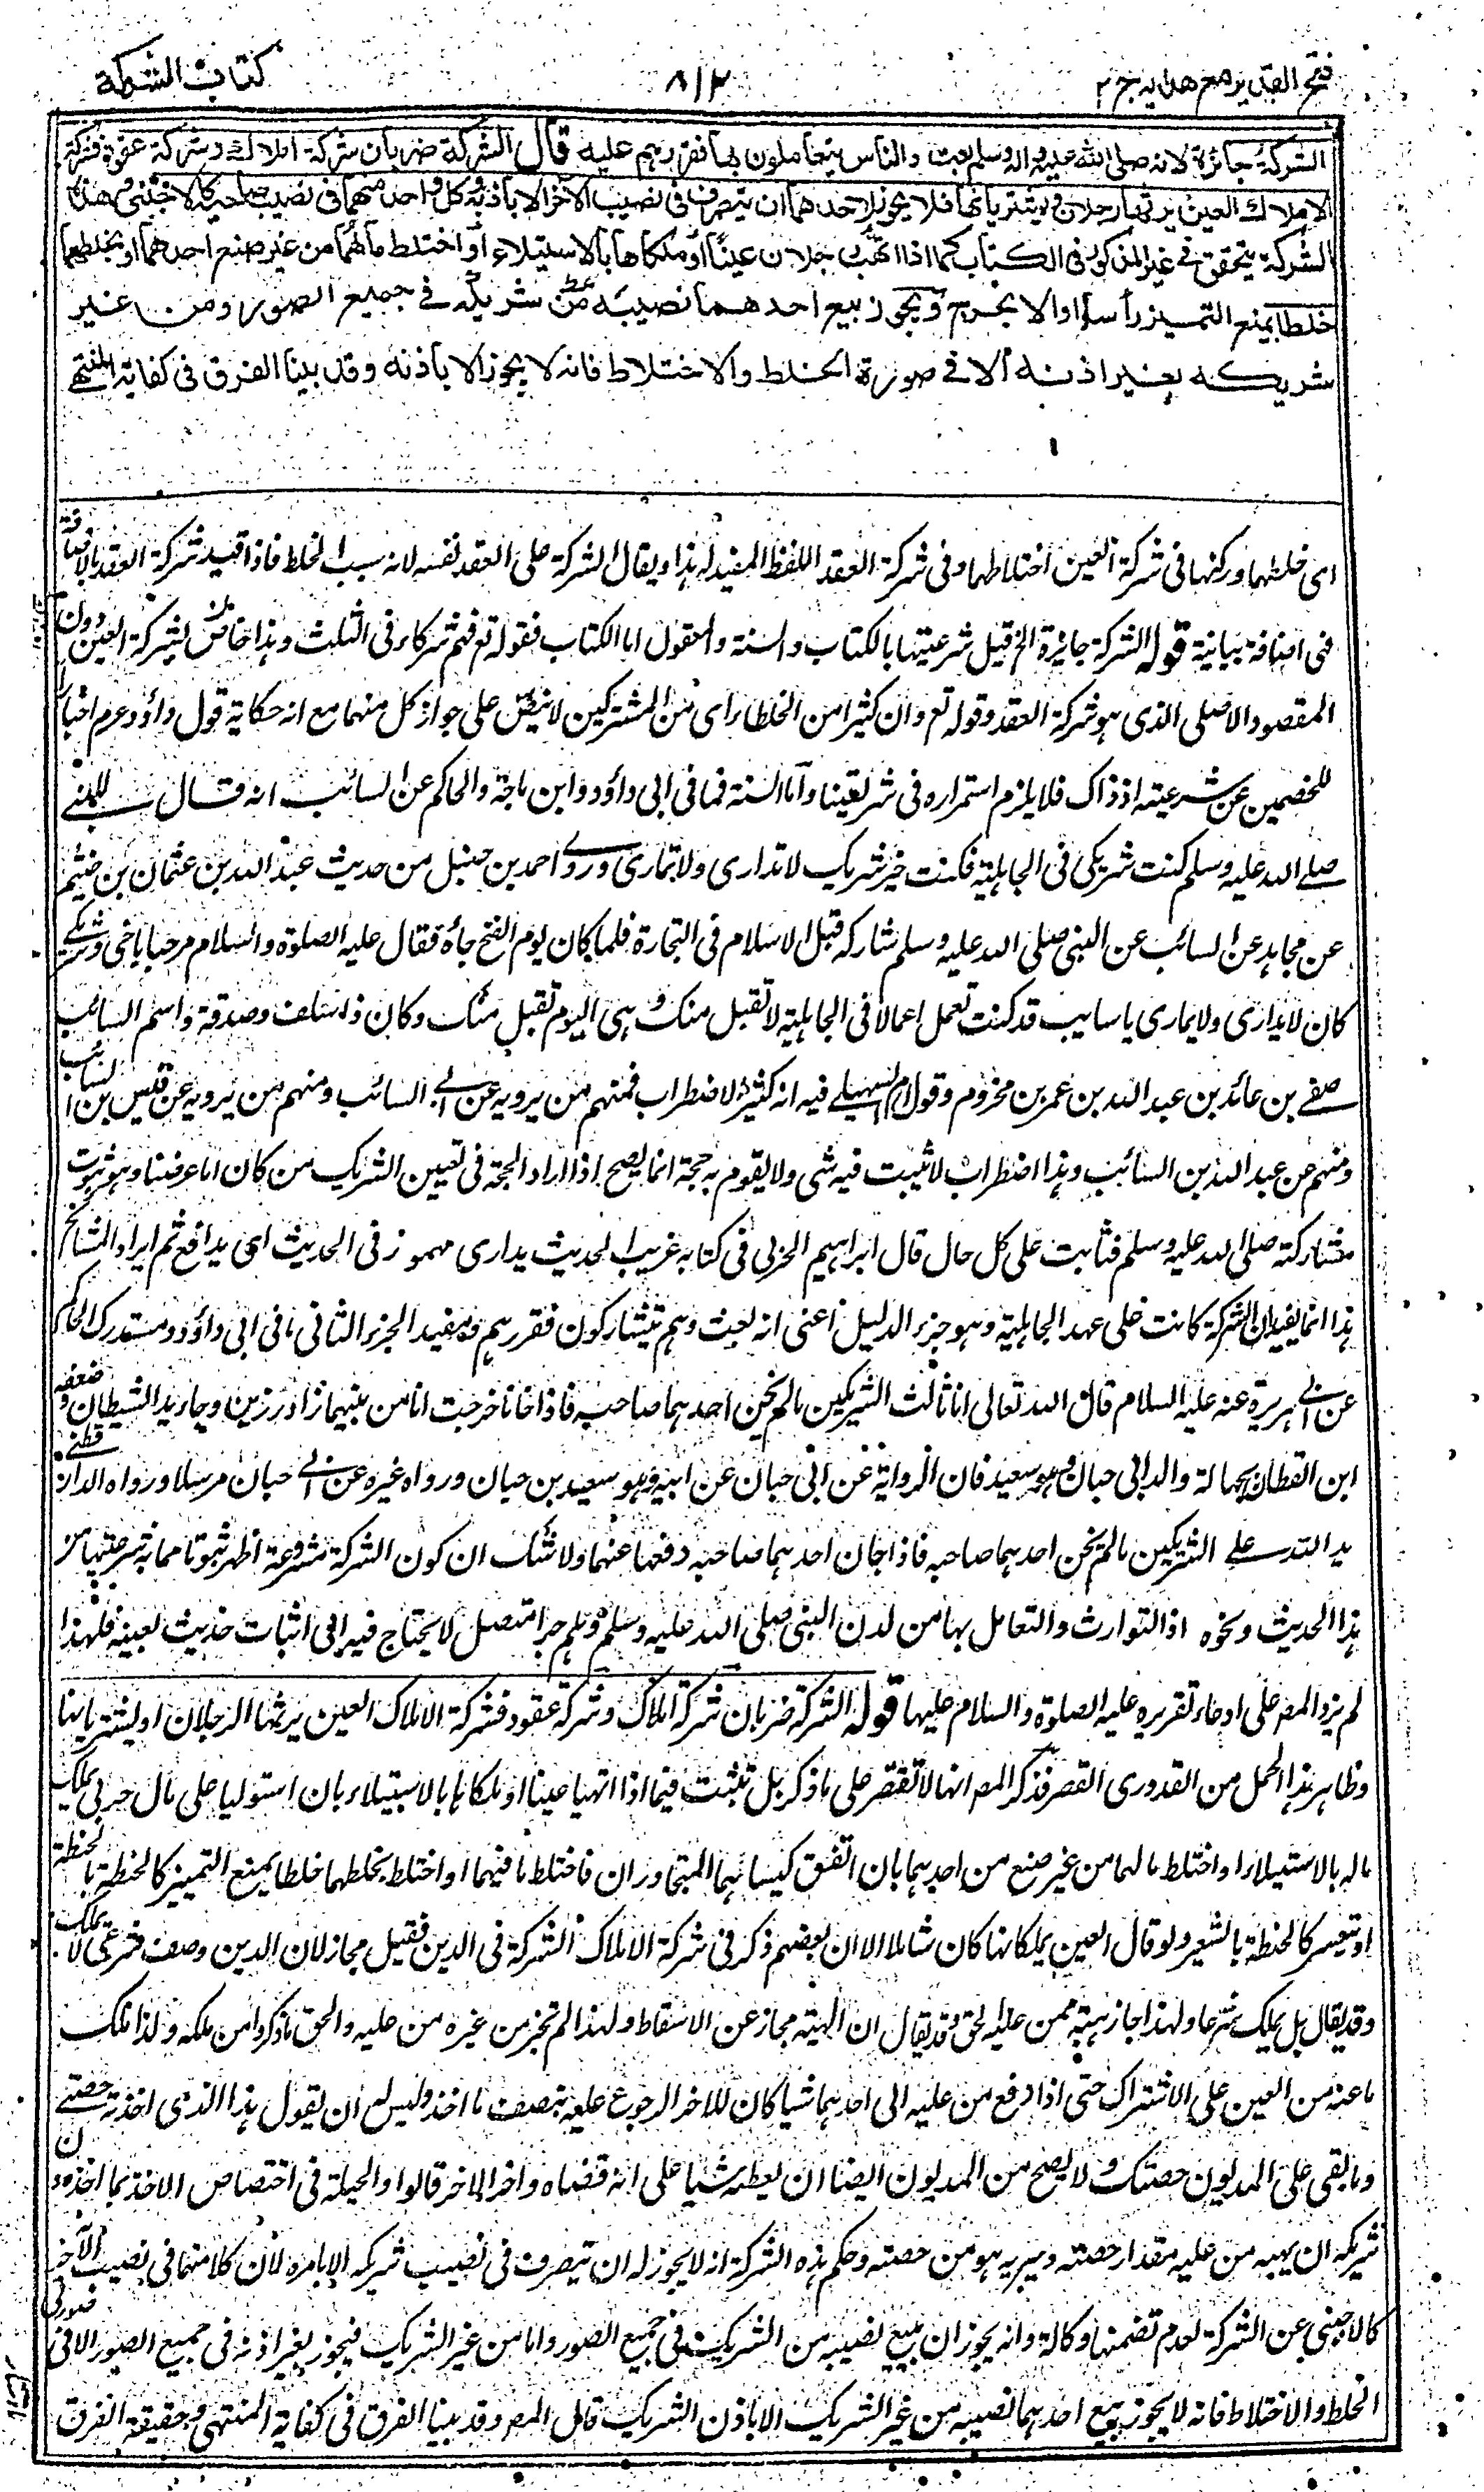 فتح القدير مع هدايه ج ٢
٨١٢
كتاب الشركة
الشركة جائزة لانه صلى الله عليه واله وسلم بعث والناس يتعاملون بها فقررهم عليه قال الشركة ضربان شركة املاك وشركة عقود فشركة
الاملاك العين يرثها رجلان او يشتريانها فلا يجوز لاحدهما ان يتصرف فى نصيب الآخر الا باذنه وكل واحد منهما فى نصيب صاحبه كالاجنبى وهذه
الشركة يتحقق فى غير المذكور فى الكتاب كما اذا اتهب رجلان عينا او ملكاها بالاستيلاء او اختلط مالهما من غير صنع احدهما او بخلطهما
خلطا يمنع التمييز رأسا او الا بحرج ويجوز بيع احدهما نصيبه من شريكه فى جميع الصور ومن غير
شريكه بغير اذنه الا فى صورة الخلط والاختلاط فانه لا يجوز الا باذنه وقد بينا الفرق فى كفاية المنتهى
اى خلطهما وركنها فى شركة العين اختلاطهما وفى شركة العقد اللفظ المفيد له هذا ويقال الشركة على العقد نفسه لانه سبب الخلط فاذا قيد شركة العقد بالاضافة
فهى اضافة بيانية قوله الشركة جائزة الخ قيل شرعيتها بالكتاب والسنة والمعقول اما الكتاب فقوله تع فهم شركاء فى الثلث وهذا خاص بشركة العين دون
المقصود الاصلى الذى هو شركة العقد وقوله تع وان كثيرا من الخلطاء اى من المشتركين لا ينص على جواز كل منهما مع انه حكاية قول داؤد عرم اخبارا
للخصمين عن شرعيته اذ ذاك فلا يلزم استمراره فى شريعتنا وأما السنة فما فى ابى داؤد وابن ماجة والحاكم عن السائب انه قال للنبى
صلى الله عليه وسلم كنت شريكى فى الجاهلية فكنت خير شريك لا تدارى ولا تمارى وروى احمد بن حنبل من حديث عبد الله بن عثمان بن خثيم
عن مجاهد عن السائب عن النبى صلى الله عليه وسلم شاركه قبل الاسلام فى التجارة فلما كان يوم الفتح جاءه فقال عليه الصلوة والسلام مرحبا باخى وشريكى
كان لا يدارى ولا يمارى يا سايب قد كنت تعمل اعمالا فى الجاهلية لا تقبل منك وهى اليوم تقبل منك وكان ذا سلف وصدقة واسم السائب
صفى بن عائذ بن عبد الله بن عمر بن مخزوم وقول السهيلى فيه انه كثير الاضطراب فمنهم من يرويه عن ابى السائب ومنهم من يرويه عن قيس بن السائب
ومنهم عن عبد الله بن السائب وهذا اضطراب لا يثبت فيه شى ولا يقوم به حجة انما يصح اذا اراد الحجة فى تعيين الشريك من كان اما غرضنا وهو ثبوت
مشاركته صلى الله عليه وسلم فثابت على كل حال قال ابراهيم الحربى فى كتابه غريب الحديث يدارى مهموز فى الحديث اى يدافع ثم ايراد المشائخ
هذا انما يفيد ان الشركة كانت على عهد الجاهلية وهو جزء الدليل اعنى انه بعث وهم يتشاركون فقررهم ويفيد الجزء الثانى ما فى ابى داؤد ومستدرك الحاكم
عن ابى هريرة عنه عليه السلام قال الله تعالى انا ثالث الشريكين ما لم يخن احدهما صاحبه فاذا خانا خرجت انا من بينهما زاد رزين وجاء يد الشيطان وضعفه
ابن القطان بجهالة والد ابى حيان وهو سعيد فان الرواية عن ابى حيان عن ابيه وهو سعيد بن حيان ورواه غيره عن ابى حيان مرسلا ورواه الدارقطنى
يد الله على الشريكين ما لم يخن احدهما صاحبه فاذا خان احدهما صاحبه دفعها عنهما ولا شك ان كون الشركة مشروعة اظهر ثبوتا مما به شرعيتها من
هذا الحديث ونحوه اذ التوارث والتعامل بها من لدن النبى صلى الله عليه وسلم وهلم جرا متصل لا يحتاج فيه الى اثبات حديث بعينه فلهذا
لم يزد المصـ على ادعاء تقريره عليه الصلوة والسلام عليها قوله الشركة ضربان شركة املاك وشركة عقود فشركة الاملاك العين يرثها الرجلان او يشتريانها
وظاهر هذا الحمل من القدورى القصر فذكر المصـ انها لا تقتصر على ما ذكر بل تثبت فيما اذا اتهبا عينا او ملكاها بالاستيلاء بان استوليا على مال حربى يملك
ماله بالاستيلاء او اختلط مالهما من غير صنع من احدهما بان انفتق كيساهما المتجاوران فاختلط ما فيهما او اختلط بخلطهما خلطا يمنع التمييز كالحنطة بالحنطة
او يتعسر كالحنطة بالشعير ولو قال العين يملكانها كان شاملا الا ان بعضهم ذكر فى شركة الاملاك الشركة فى الدين فقيل مجاز لان الدين وصف شرعى لا يملك
وقد يقال بل يملك شرعا ولهذا جاز هبته ممن عليه الحق وقد يقال ان الهبة مجاز عن الاسقاط ولهذا لم تجز من غيره من عليه والحق ما ذكروا من ملكه ولذا ملك
ما عنه من العين على الاشتراك حتى اذا دفع من عليه الى احدهما شيا كان للاخر الرجوع عليه بنصف ما اخذ وليس له ان يقول هذا الذى اخذته حصتى
وما بقى على المديون حصتك ولا يصح من المديون ايضا ان يعطيه شيا على انه قضاه واخر الاخر قالوا والحيلة فى اختصاص الاخذ بما اخذ دون
شريكه ان يهبه من عليه مقدار حصته ويبريه هو من حصته وحكم هذه الشركة انه لا يجوز له ان يتصرف فى نصيب شريكه الا بامره لان كلا منهما فى نصيب الآخر
كالاجنبى عن الشركة لعدم تضمنها وكالة وانه يجوز ان يبيع نصيبه من الشريك فى جميع الصور واما من غير الشريك فيجوز بغير اذنه فى جميع الصور الا فى صورتى
الخلط والاختلاط فانه لا يجوز بيع احدهما نصيبه من غير الشريك الا باذن الشريك قال المصـ وقد بينا الفرق فى كفاية المنتهى وحقيقة الفرق